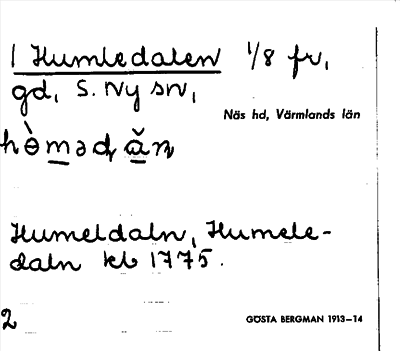 1 Humledalen 1/8 fr,
gd, S. Ny sn,
Näs hd, Värmlands län
hɵ̀mədǎn
Humeldaln, Humele-
daln kb 1775.
2
GÖSTA BERGMAN 1913–14